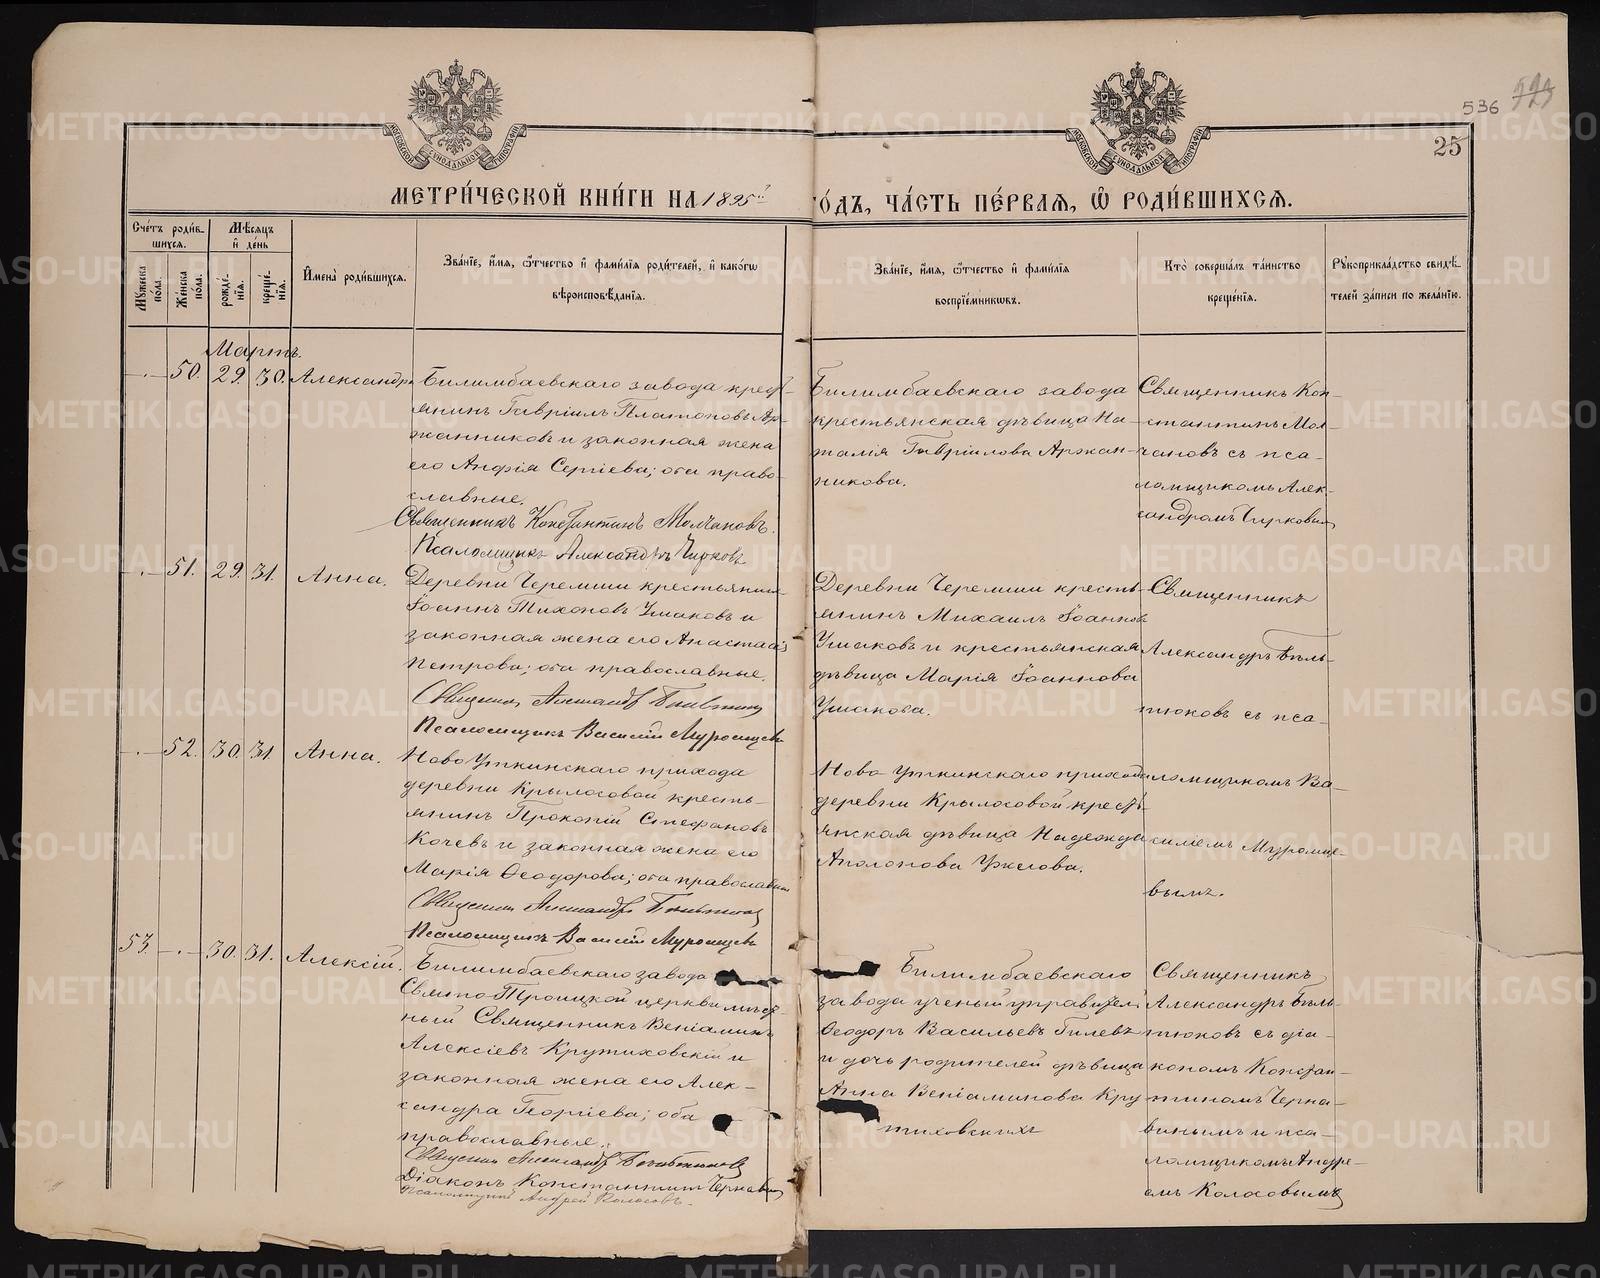 536
523
25
МОСКОВСКОЙ СѴНОДАЛЬНОЙ ТИПОГРАФІИ
МОСКОВСКОЙ СѴНОДАЛЬНОЙ ТИПОГРАФІИ
МЕТРИ́ЧЕСКОЙ КНИ́ГИ НА 1895й
ГОДЪ, ЧА́СТЬ ПЕ́РВАЯ, Ѽ РОДИ́ВШИХСЯ.
Сче́тъ роди́в-
шихся.
Мꙋжеска по́ла.
Же́нска по́ла.
Мѣ́сяцъ
и҆ де́нь
рожде́-
нїя.
креще́-
нїя.
И҆мена̀ роди́вшихся.
Зва́нїе, и҆́мя, ѻ҆́тчество и҆ фами́лїя роди́телей, и҆ како́гѡ
вѣроисповѣ́данїя.
Зва́нїе, и҆́мя, ѻ҆́тчество и҆ фами́лїя
воспрїе́мникѡвъ.
Кто̀ соверша́лъ та́инство
креще́нїя.
Рꙋкоприкла́дство свидѣ́-
телей за́писи по жела́нїю.
Мартъ.
50. 29. 30. Александра
Билимбаевскаго завода кресть-
янинъ Гавріилъ Платоновъ Ар-
жанниковъ и законная жена
его Анфія Сергіева; оба право-
славные.
Священникъ Константинъ Молчановъ.
Псаломщикъ Александръ Чирковъ
Билимбаевскаго завода
крестьянская дѣвица На-
талія Гавріилова Аржан-
никова.
Священникъ Кон-
стантинъ Мол-
чановъ съ пса-
ломщикомъ Алек-
сандромъ Чирковымъ
51. 29. 31. Анна.
Деревни Черемши крестьянинъ
Іоаннъ Тихоновъ Ушаковъ и
законная жена его Анастасія
Петрова; оба православные.
Священникъ Александръ Бѣльтюковъ
Псаломщикъ Василій Муромцевъ
Деревни Черемши кресть-
янинъ Михаилъ Іоанновъ
Ушаковъ и крестьянская
дѣвица Марія Іоаннова
Ушакова.
Священникъ
Александръ Бѣль-
тюковъ съ пса-
52. 30. 31. Анна.
Ново Уткинскаго прихода
деревни Крылосовой кресть-
янинъ Прокопій Стефановъ
Кочевъ и законная жена его
Марія Ѳеодорова; оба православные
Священникъ Александръ Бѣльтюковъ
Псаломщикъ Василій Муромцевъ
Ново Уткинскаго прихода
деревни Крылосовой кресть-
янская дѣвица Надежда
Аполонова
ломщикомъ Ва-
силіемъ Муромце-
вымъ.
53. 30. 31. Алексій.
Билимбаевскаго завода
Свято-Троицкой церкви мѣст-
ный Священникъ Веніаминъ
Алексіевъ Крутиховскій и
законная жена его Алек-
сандра Георгіева; оба
православные.
Священникъ Александръ Бѣльтюковъ
Діаконъ Константинъ Чернавинъ
Псаломщикъ Андрей Колосовъ.
Билимбаевскаго
завода ученый управитель
Ѳеодоръ Васильевъ Гилевъ
и дочь родителей дѣвица
Анна Веніаминова Кру
тиховскихъ
Священникъ
Александръ Бѣль-
тюковъ съ діа-
кономъ Констан-
тиномъ Черна-
винымъ и пса-
ломщикомъ Андре-
емъ Колосовымъ
METRIKI.GASO-URAL.RU